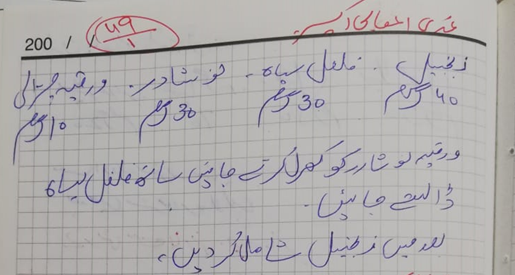 غدی اعصابی اکسیر
200 / / 49/1
زنجبیل . فلفل سیاہ . نوشادر . ورقیہ ہڑتال
40 گرام 30 گرام 30 گرام 10 گرام
ورقیہ نوشادر کو کھرل کرتے جائیں ساتھ فلفل سیاہ
ڈالتے جائیں .
بعد میں زنجبیل شامل کر دیں ،